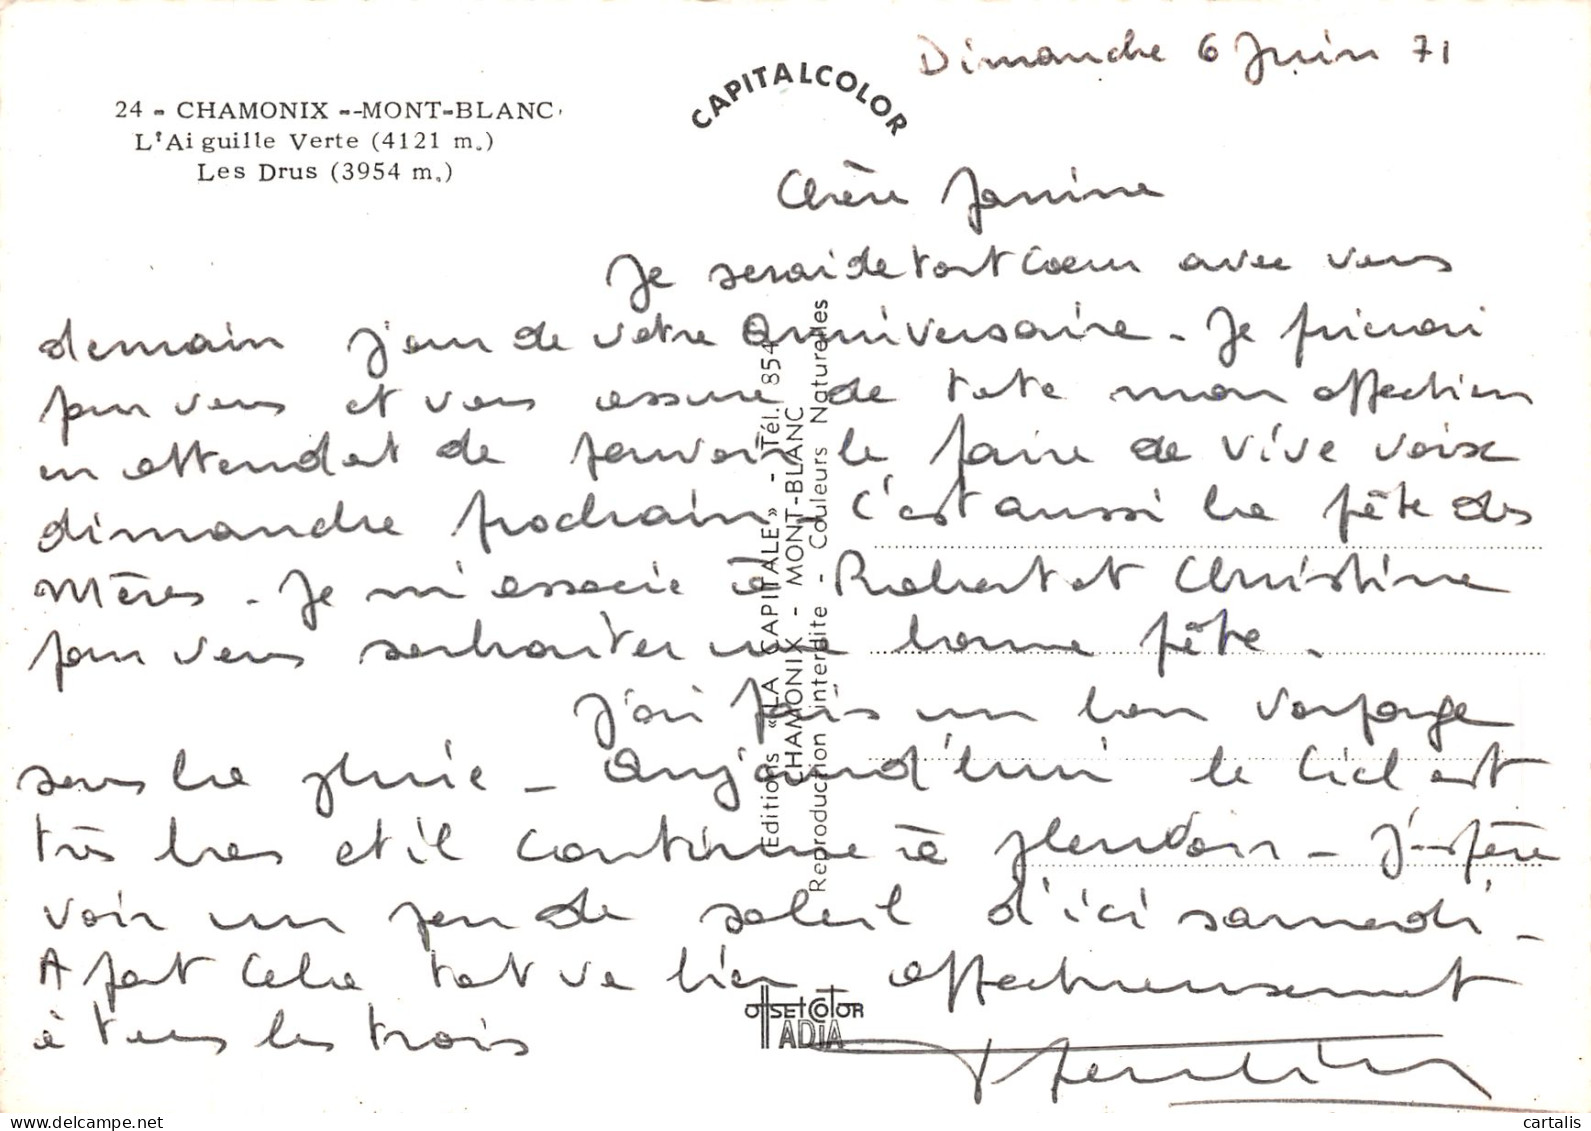 Dimanche 6 Juin 71
CAPITALCOLOR
24 - CHAMONIX --MONT-BLANC
L'Aiguille Verte (4121 m.)
Les Drus (3954 m.)
Chère Janine
Je serai de tout coeur avec vous
demain jour de votre Anniversaire - Je prierai
pour vous et vous assure de toute mon affection
en attendant de pouvoir le faire de vive voix
dimanche prochain, c'est aussi la fête des
Mères - Je m'associe à Robert et Christine
pour vous souhaiter une bonne fête.
J'ai fais un bon voyage
sous la pluie - Aujourd'hui le Ciel est
très bas et il continue à pleuvoir - J'espère
voir un peu de soleil d'ici samedi -
A part cela tout va bien affectueusement
à tous les trois
Editions «LA CAPITALE» - Tél. 854
CHAMONIX - MONT-BLANC
Reproduction interdite - Couleurs Naturelles
OFFSET COLOR
ADIA
cartalis